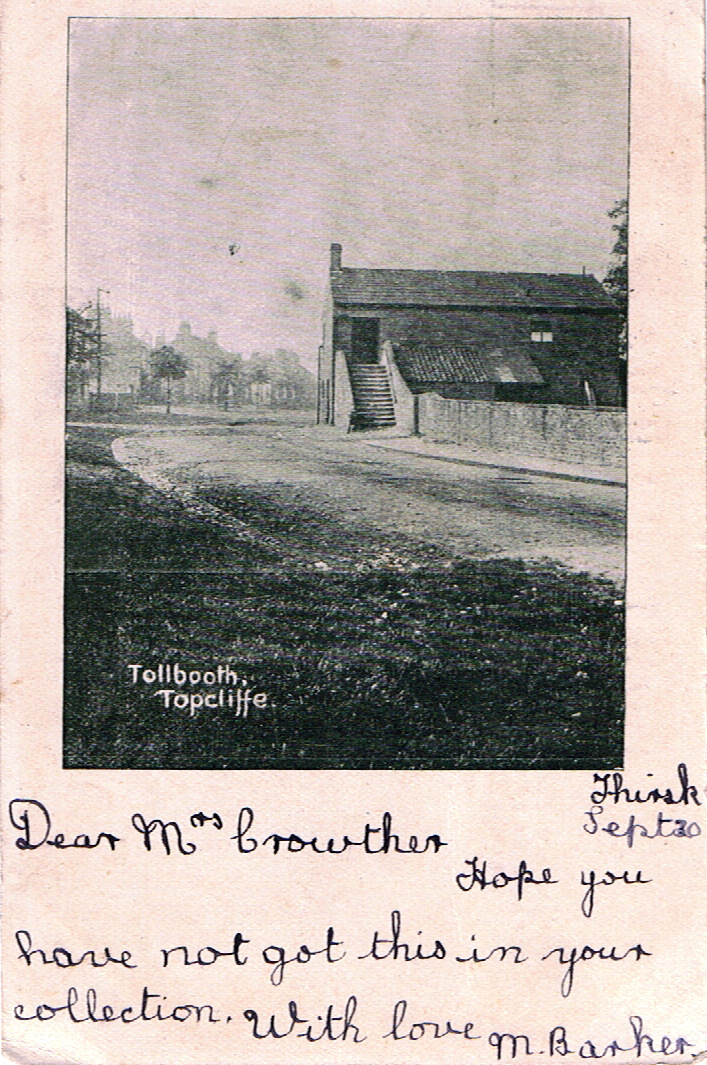 Tollbooth,
Topcliffe.
Thirsk
Sept 30
Dear Mrs Crowther
Hope you
have not got this in your
collection. With love M. Barker.